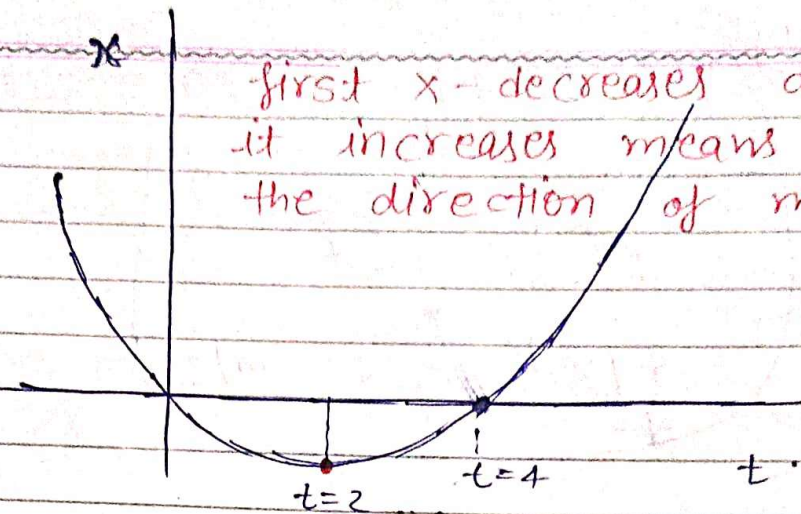 x
first x - decreases
it increases means
the direction of
t=2
t=4
t